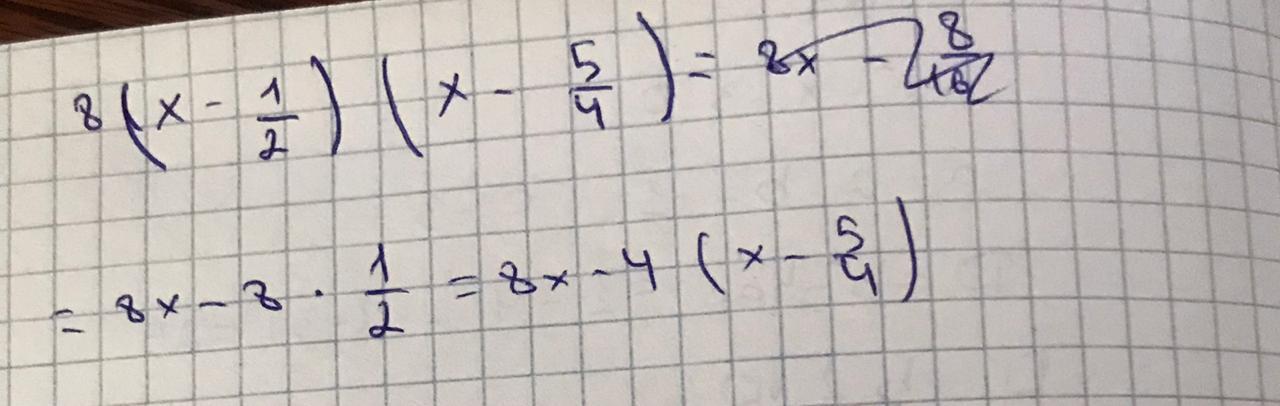 8(x - 1/2)(x - 5/4) = 8x - 8/
= 8x - 8 · 1/2 = 8x - 4(x - 5/4)